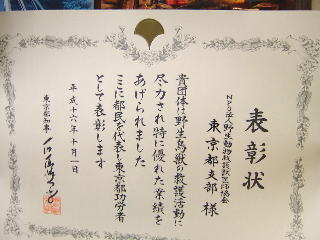 表彰状
NPO法人野生動物救護獣医師協会
東京都支部 様
貴団体は野生鳥獣の救護活動に
尽力され特に優れた業績を
あげられました
ここに都民を代表し東京都功労者
として表彰します
平成十六年十月一日
東京都知事